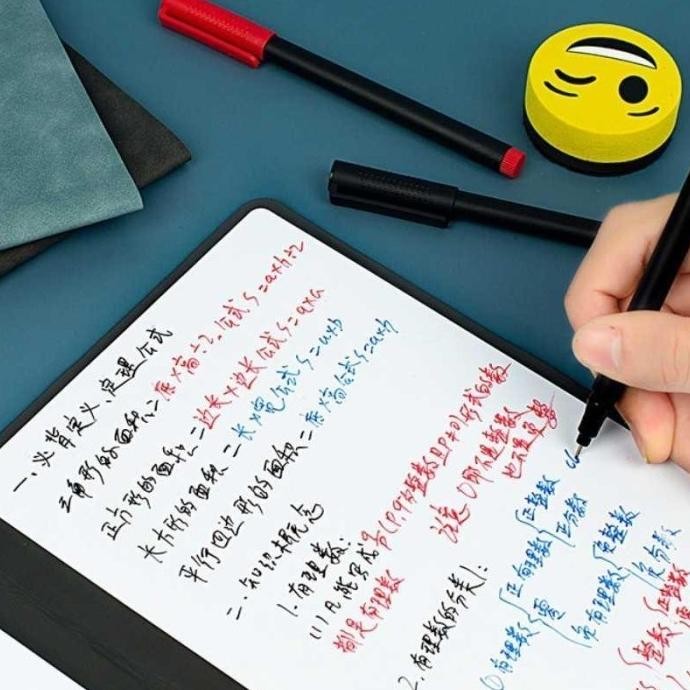 一、必背定义、定理公式
三角形的面积=底×高÷2.公式S=a×h÷2
正方形的面积=边长×边长公式S=a×a
长方形的面积=长×宽公式S=a×b
平行四边形的面积=底×高公式S=a×h
二、知识概念
1.有理数:
(1)凡能写成 (P,q为整数且P≠0)形式的数
都是有理数 注意 0即不是整数
也不是负数
2.有理数的分类1:
①有理数 正有理数 正整数 正分数
零
负有理数 负整数 负分数
整数 正整数